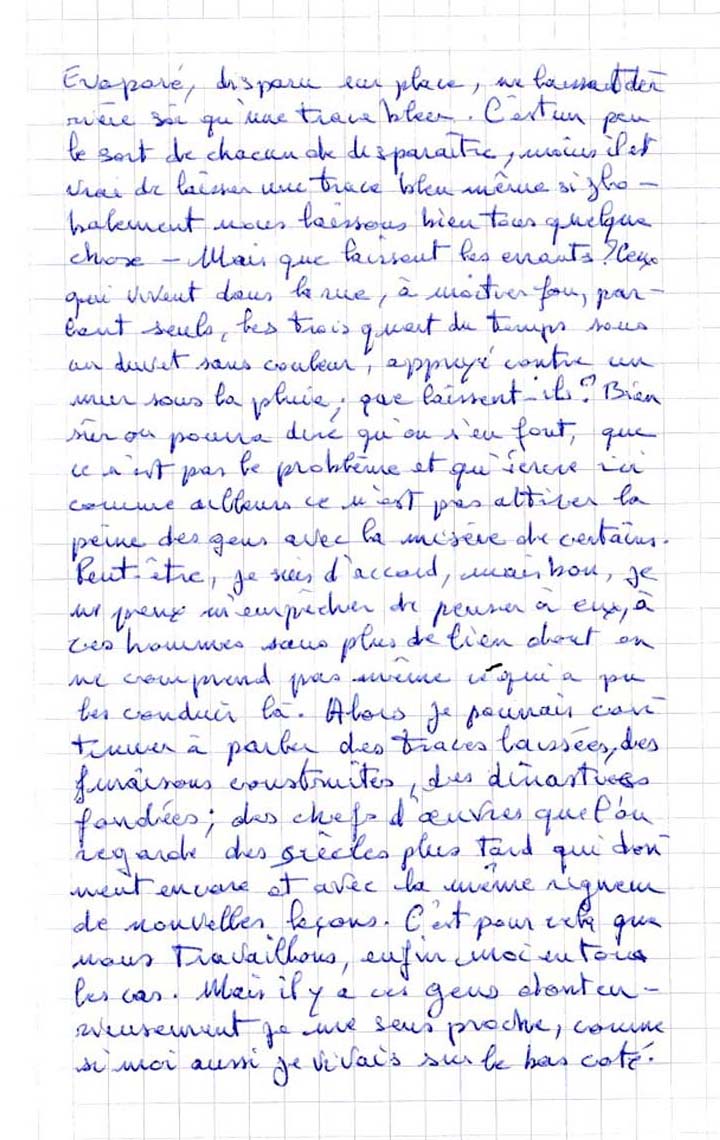 Evaporé, disparu sur place, ne laissant der
rière soi qu'une trace bleu. C'est un peu
le sort de chacun de disparaître, moins il est
vrai de laisser une trace bleu même si glo-
balement nous laissons bien tous quelque
chose - Mais que laissent les errants? Ceux
qui vivent dans la rue, à moitier fou, par-
lant seuls, les trois quart du temps sous
un duvet sans couleur, appuyé contre un
mur sous la pluie; que laissent-ils? Bien
sûr on pourra dire qu'on s'en fout, que
ce n'est pas le problème et qu'écrire ici
comme ailleurs ce n'est pas attirer la
peine des gens avec la misère de certains.
Peut-être, je suis d'accord, mais bon, je
ne peux m'empêcher de penser à eux, à
ces hommes sans plus de lien dont on
ne comprend pas même ce qui a pu
les conduir là. Alors je pourrais con
tinuer à parler des traces laissées, des
maisons construites, des dinasties
fondées; des chefs d'œuvres que l'on
regarde des siècles plus tard qui don
nent encore et avec la même rigueur
de nouvelles leçons. C'est pour cela que
nous travaillons, enfin moi en tous
les cas. Mais il y a ces gens dont cu-
rieusement je me sens proche, comme
si moi aussi je vivais sur le bas coté.